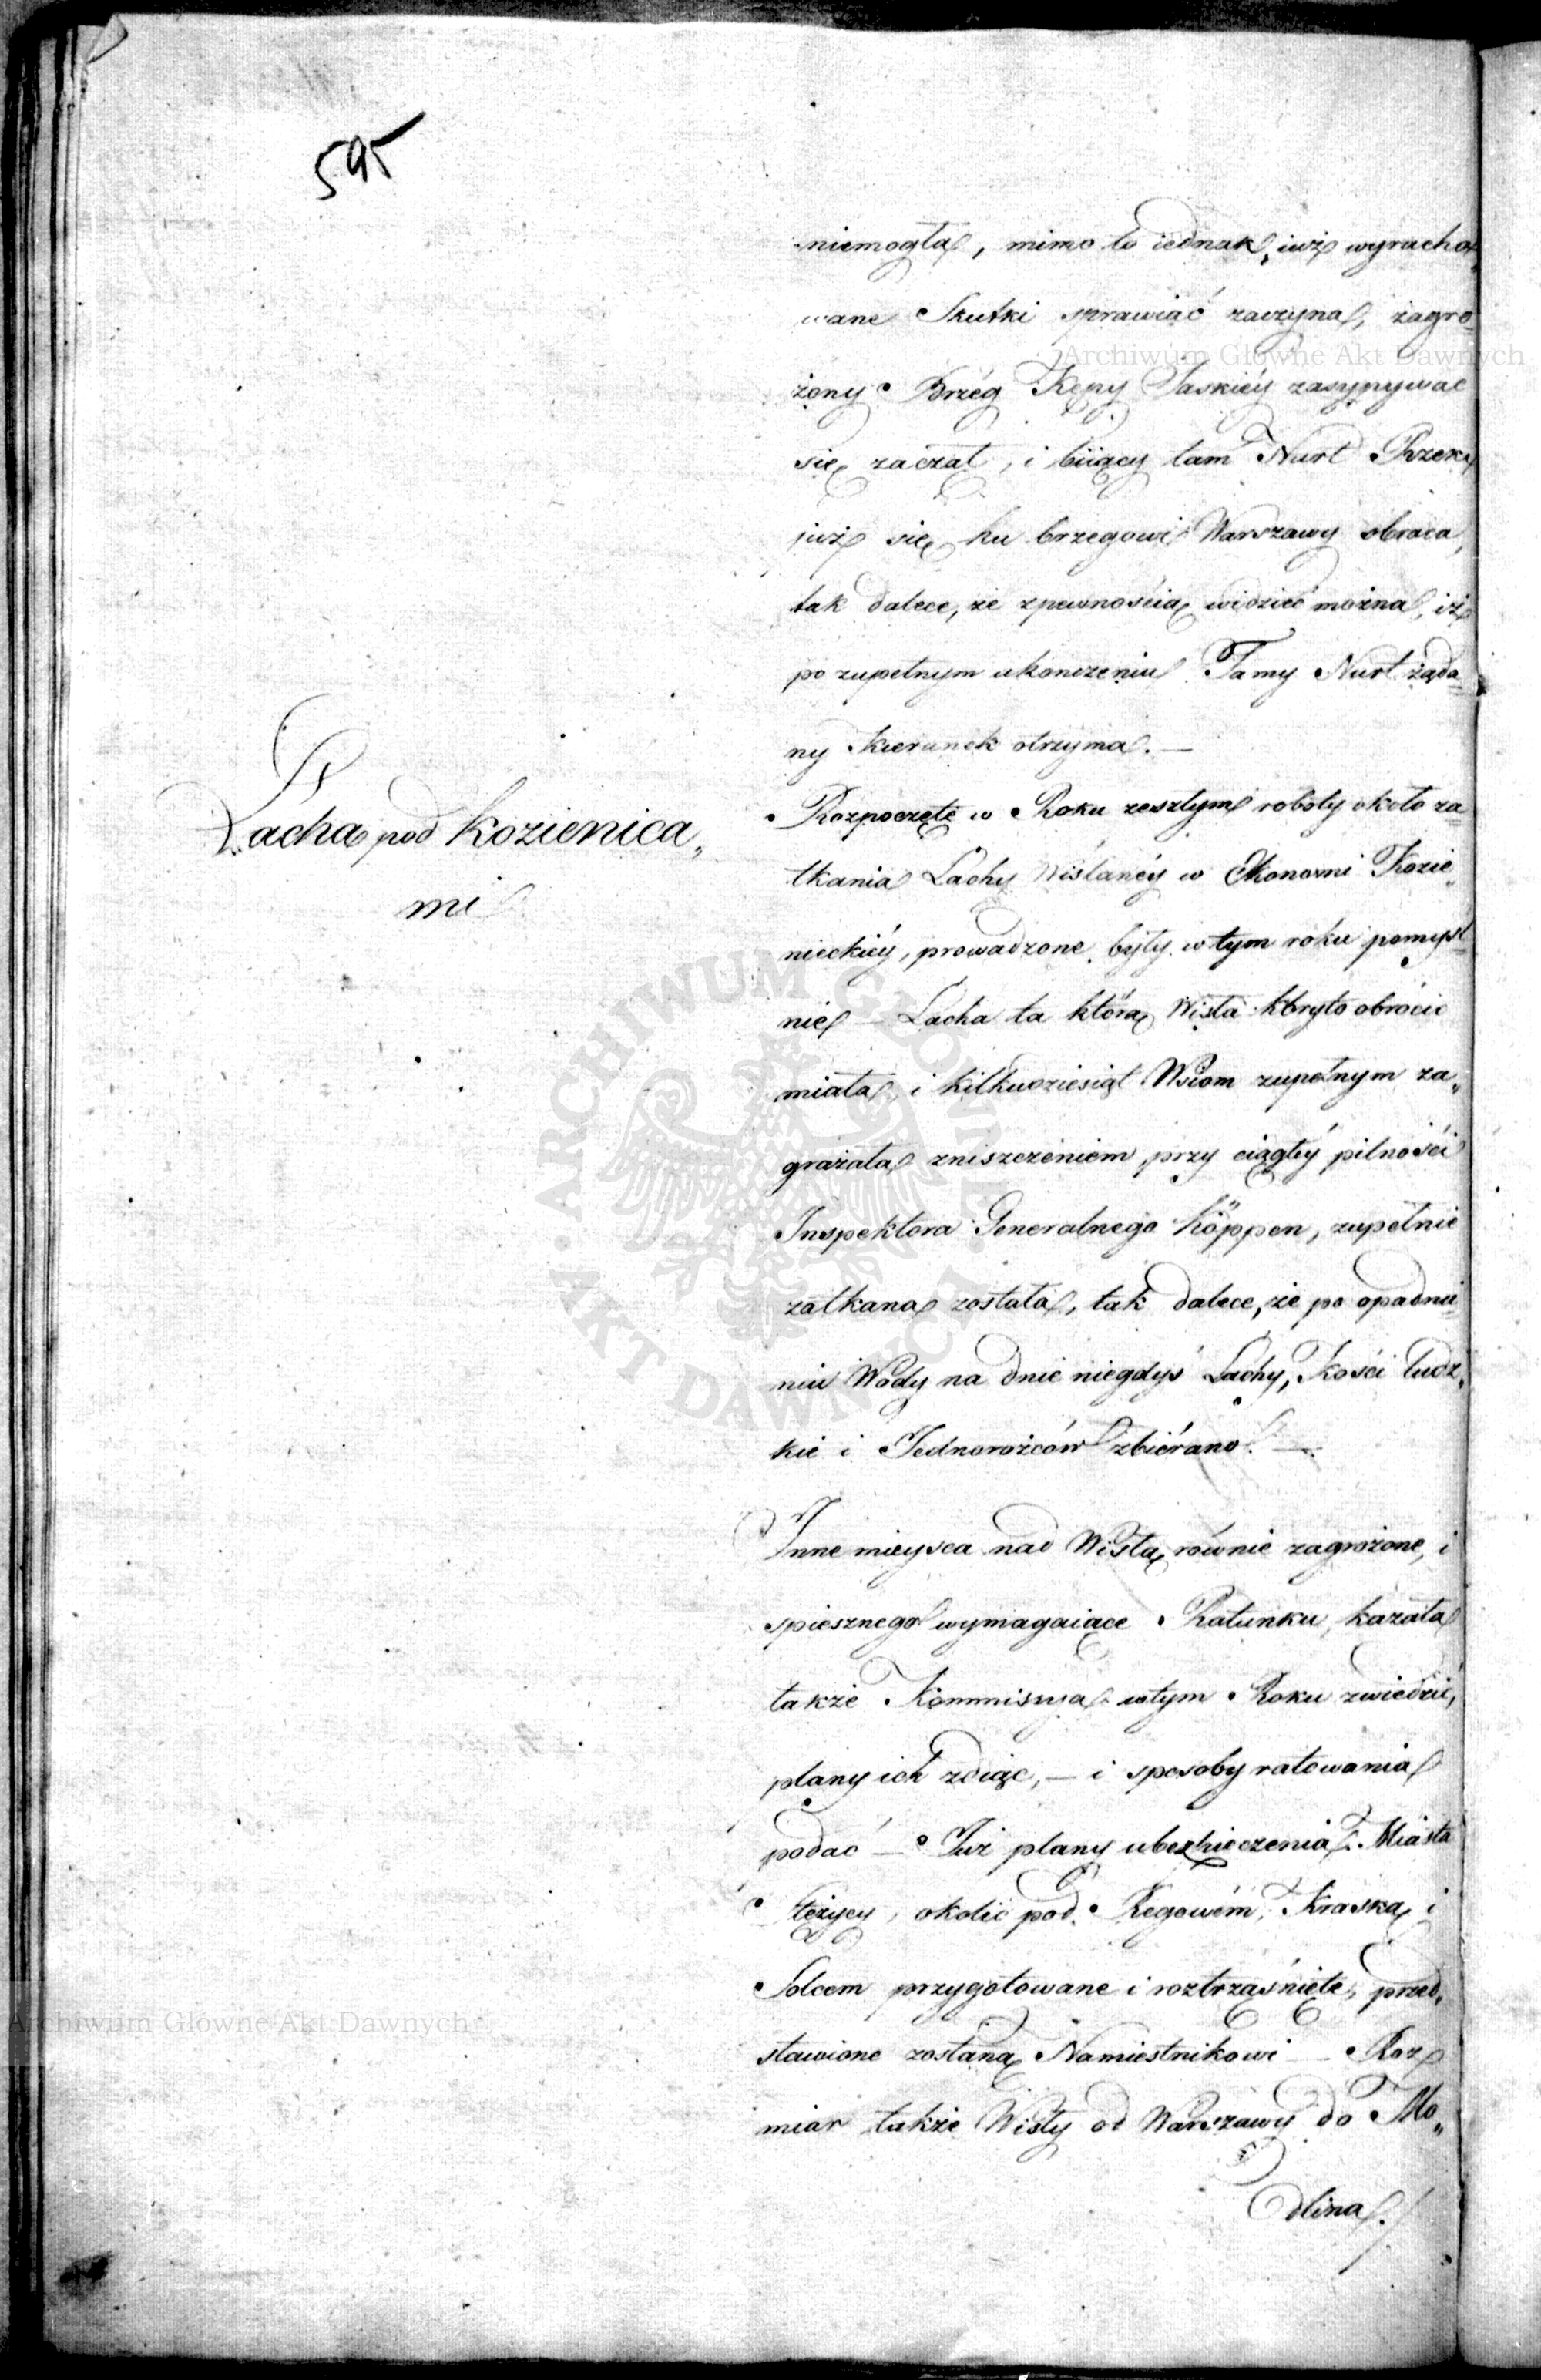 595
niemogła, mimo to iednak, iuż wyracho„
wane Skutki sprawiać zaczyna, zagro„
żony Brzég Kępy Saskiéy zasypywać
się zaczął, i biiący tam Nurt Rzeki
już się ku brzegowi Warszawy obraca,
tak dalece, że zpewnością widzieć można, iż
po zupełnym ukonczeniu Tamy Nurt żąda„
ny kierunek otrzyma. —
Lacha pod Kozienica„
mi
Rozpoczęte w Roku zeszłym roboty około za„
tkania Lachy Wislanéy w Ekonomii Kozie„
nieckiéy, prowadzone były w tym roku pomyśl„
nie — Lacha ta którą Wisła koryto obrócić
miała, i kilkudziesiąt Wsiom zupełnym za„
grażała zniszczeniem, przy ciągłéy pilności
Inspektora Generalnego Köppen, zupełnie
zatkana została, tak dalece, że po opadnie„
niu Wody na dnie niegdyś Lachy, Kości ludz„
kie i Jednorożców zbiérano. —
Inne mieysca nad Wisłą równie zagrożone, i
spiesznego wymagaiące Ratunku, kazała
także Kommissya wtym Roku zwiedzić,
plany ich zdiąć, — i sposoby ratowania
podać — Już plany ubezpieczenia Miasta
Stężycy, okolic pod Regowém, Kraską i
Solcem przygotowane i roztrząśnięte, przed„
stawione zostaną Namiestnikowi — Roz„
miar także Wisły od Warszawy do Mo„
dlina.
Archiwum Główne Akt Dawnych
ARCHIWUM GŁÓWNE AKT DAWNYCH
Archiwum Główne Akt Dawnych